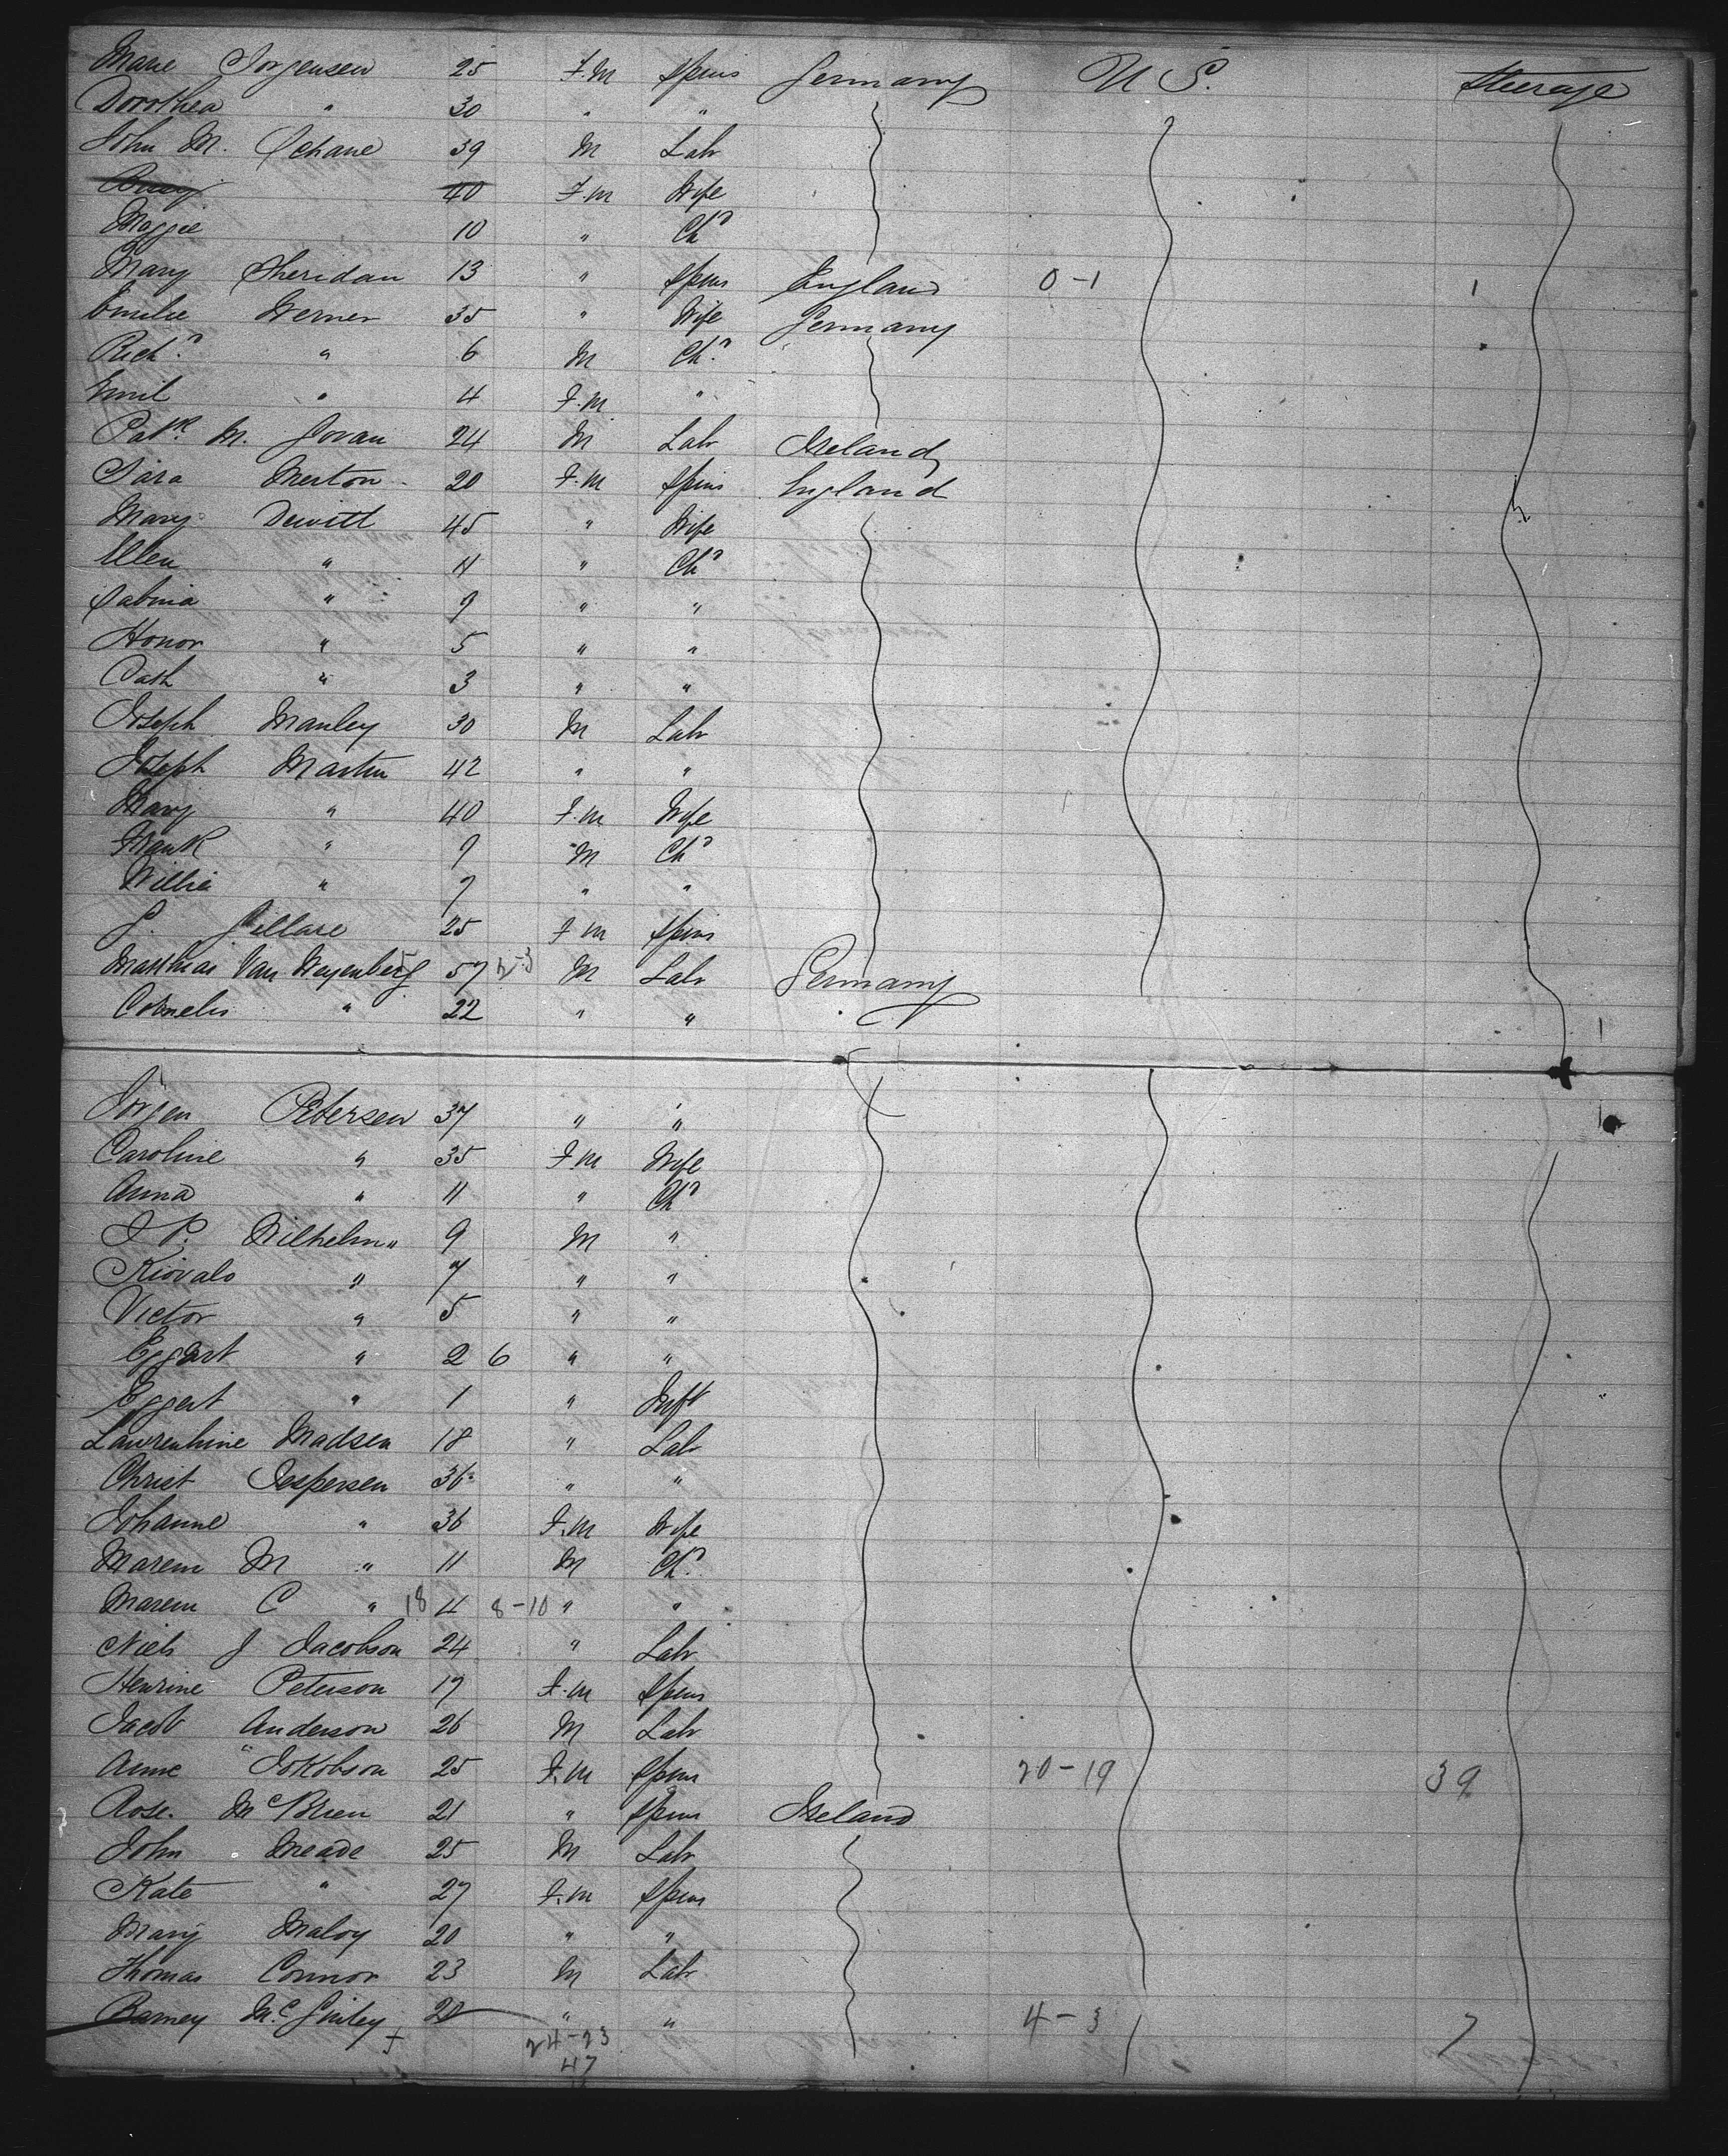 Marie Jorgensen 25 F.M Spins Germany U S. Steerage
Dorothea " 30 " "
John M. Schane 39 M Labr
40 F.M Wife
Maggie 10 " Chd
Mary Sheridan 13 " Spins England 0-1 1
Emilie Werner 35 " Wife Germany
Richd " 6 M Chd
Emil " 4 F.M "
Patk M. Govan 24 M Labr Ireland
Sara Merton 20 F.M Spins England
Mary Dewitt 45 " Wife
Ellen " 11 " Chd
Sabina " 9 " "
Honor " 5 " "
Cath " 3 " "
Joseph Manley 30 M Labr
Joseph Martin 42 " "
Mary " 40 F.M Wife
Frank " 9 M Chd
Willie " 7 " "
25 F M Spins
Matthias Van Weyenberg 57 M Labr Germany
Cornelis " 22 " "
Jörgen Petersen 37 " "
Caroline " 35 F.M Wife
Anna " 11 " Chd
J P. Wilhelm " 9 M "
" 7 " "
Victor " 5 " "
Eggert " 2 6 " "
Eggert " 1 " Inft
Laurentine Madsen 18 " Labr
Christ Jespersen 36 " "
Johanne " 36 F.M Wife
Maren M " 11 M Chd
Maren C " 18 4 8-10 " "
Niels J Jacobson 24 " Labr
Henrine Peterson 19 F.M Spins
Jacob Anderson 26 M Labr
Anne Jokobson 25 F.M Spins 20-19 39
Rose McBrien 21 " Spins Ireland
John Meade 25 M Labr
Kate " 27 F.M Spins
Mary Maloy 20 " "
Thomas Connor 23 M Labr
Barney McGinley 20 " " 4-3 7
24-23
47